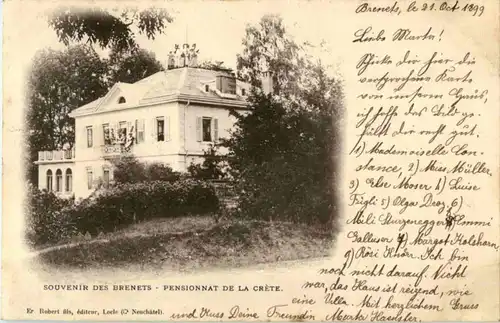 Brenets, le 21. Oct 1899
Liebs Marta!
Schicke Dir hier die
versprochene Karte
von unserm Haus,
ich hoffe das Bild
gfällt dir recht gut.
1) Mademoiselle Con-
stance, 2) Miss. Müller
3) Else Moser 4) Luise
Fügli 5) Olga Droz, 6)
Mili Sturzenegger, Emmi
Gallusser 8) Margot Holzhorn
9) Röri Knörr. Ich bin
noch nicht darauf. Nicht
war, das Haus ist reizend, wie
eine Villa. Mit herzlichem Gruss
und Kuss Deine Freundin Marta Haensler.
SOUVENIR DES BRENETS - PENSIONNAT DE LA CRÊTE.
Er Robert fils, éditeur, Locle (Ct Neuchâtel).